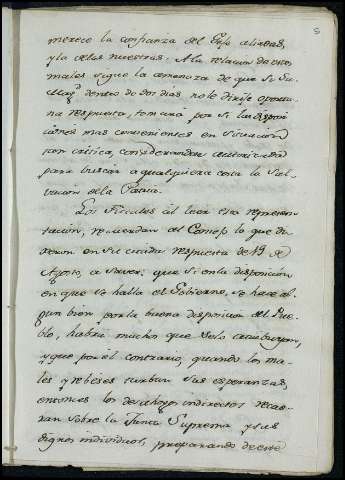 merece la confianza del Exto aliados,
y la de los nuestros. A la relacion de estos
males sigue la amenaza de que si Su
Magd dentro de dos dias no le dirije oportu-
na respuesta, tomará por si las disposi-
ciones mas convenientes en situacion
tan critica, considerandose autorizado
para buscar a qualquiera costa la Sal-
vacion de la Patria.
Los Fiscales al leer esta represen-
tacion, recuerdan al Consejo lo que di-
xeron en su citada respuesta de 19 de
Agosto, a saver: que si en la disposicion
en que se halla el Gobierno, se hace al-
gun bien por la buena disposicion del Pue-
blo, habrá muchos que se lo atribuyan,
y que por el contrario, quando los ma-
les y rebéses turban sus esperanzas,
entonces los desahogos indirectos recae-
ran sobre la Junta Suprema y sus
dignos individuos, preparando de este